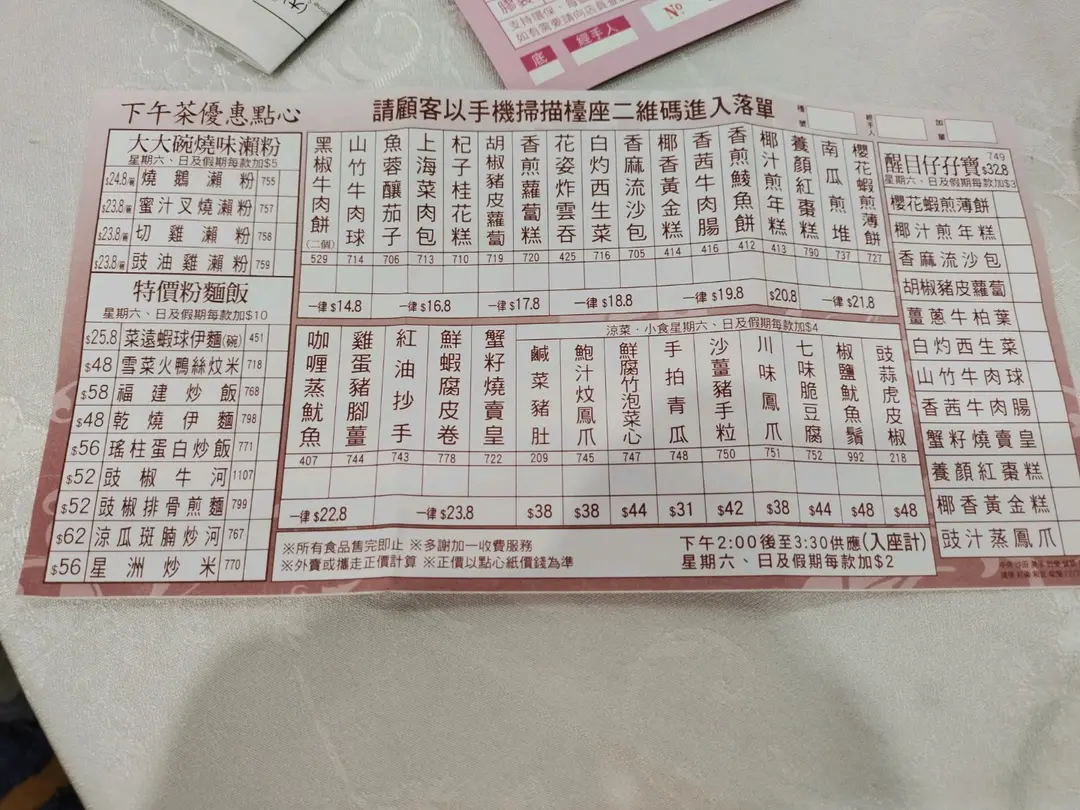 支持環保
如有需要請向店員
底
經手人
Nº
下午茶優惠點心
請顧客以手機掃描檯座二維碼進入落單
檯號
經手人
加單
大大碗燒味瀨粉
星期六、日及假期每款加$5
$24.8/碗 燒鵝瀨粉 755
$23.8/碗 蜜汁叉燒瀨粉 757
$23.8/碗 切雞瀨粉 758
$23.8/碗 豉油雞瀨粉 759
特價粉麵飯
星期六、日及假期每款加$10
$25.8 菜遠蝦球伊麵(碗) 451
$48 雪菜火鴨絲炆米 718
$58 福建炒飯 768
$48 乾燒伊麵 798
$56 瑤柱蛋白炒飯 771
$52 豉椒牛河 1107
$52 豉椒排骨煎麵 799
$62 涼瓜斑腩炒河 767
$56 星洲炒米 770
黑椒牛肉餅(二個) 529
山竹牛肉球 714
魚蓉釀茄子 706
上海菜肉包 713
杞子桂花糕 710
胡椒豬皮蘿蔔 719
香煎蘿蔔糕 720
花姿炸雲吞 425
白灼西生菜 716
香麻流沙包 705
椰香黃金糕 414
香茜牛肉腸 416
香煎鯪魚餅 412
椰汁煎年糕 413
養顏紅棗糕 790
南瓜煎堆 737
櫻花蝦煎薄餅 727
一律 $14.8
一律 $16.8
一律 $17.8
一律 $18.8
一律 $19.8
$20.8
一律 $21.8
涼菜·小食星期六、日及假期每款加$4
咖喱蒸魷魚 407
雞蛋豬腳薑 744
紅油抄手 743
鮮蝦腐皮卷 778
蟹籽燒賣皇 722
鹹菜豬肚 209
鮑汁炆鳳爪 745
鮮腐竹泡菜心 747
手拍青瓜 748
沙薑豬手粒 750
川味鳳爪 751
七味脆豆腐 752
椒鹽魷魚鬚 992
豉蒜虎皮椒 218
一律 $22.8
一律 $23.8
$38
$38
$44
$31
$42
$38
$44
$48
$48
※所有食品售完即止 ※多謝加一收費服務
※外賣或攜走正價計算 ※正價以點心紙價錢為準
下午2:00後至3:30供應(入座計)
星期六、日及假期每款加$2
749
醒目仔孖寶$32.8
星期六、日及假期每款加$3
櫻花蝦煎薄餅
椰汁煎年糕
香麻流沙包
胡椒豬皮蘿蔔
薑蔥牛柏葉
白灼西生菜
山竹牛肉球
香茜牛肉腸
蟹籽燒賣皇
養顏紅棗糕
椰香黃金糕
豉汁蒸鳳爪